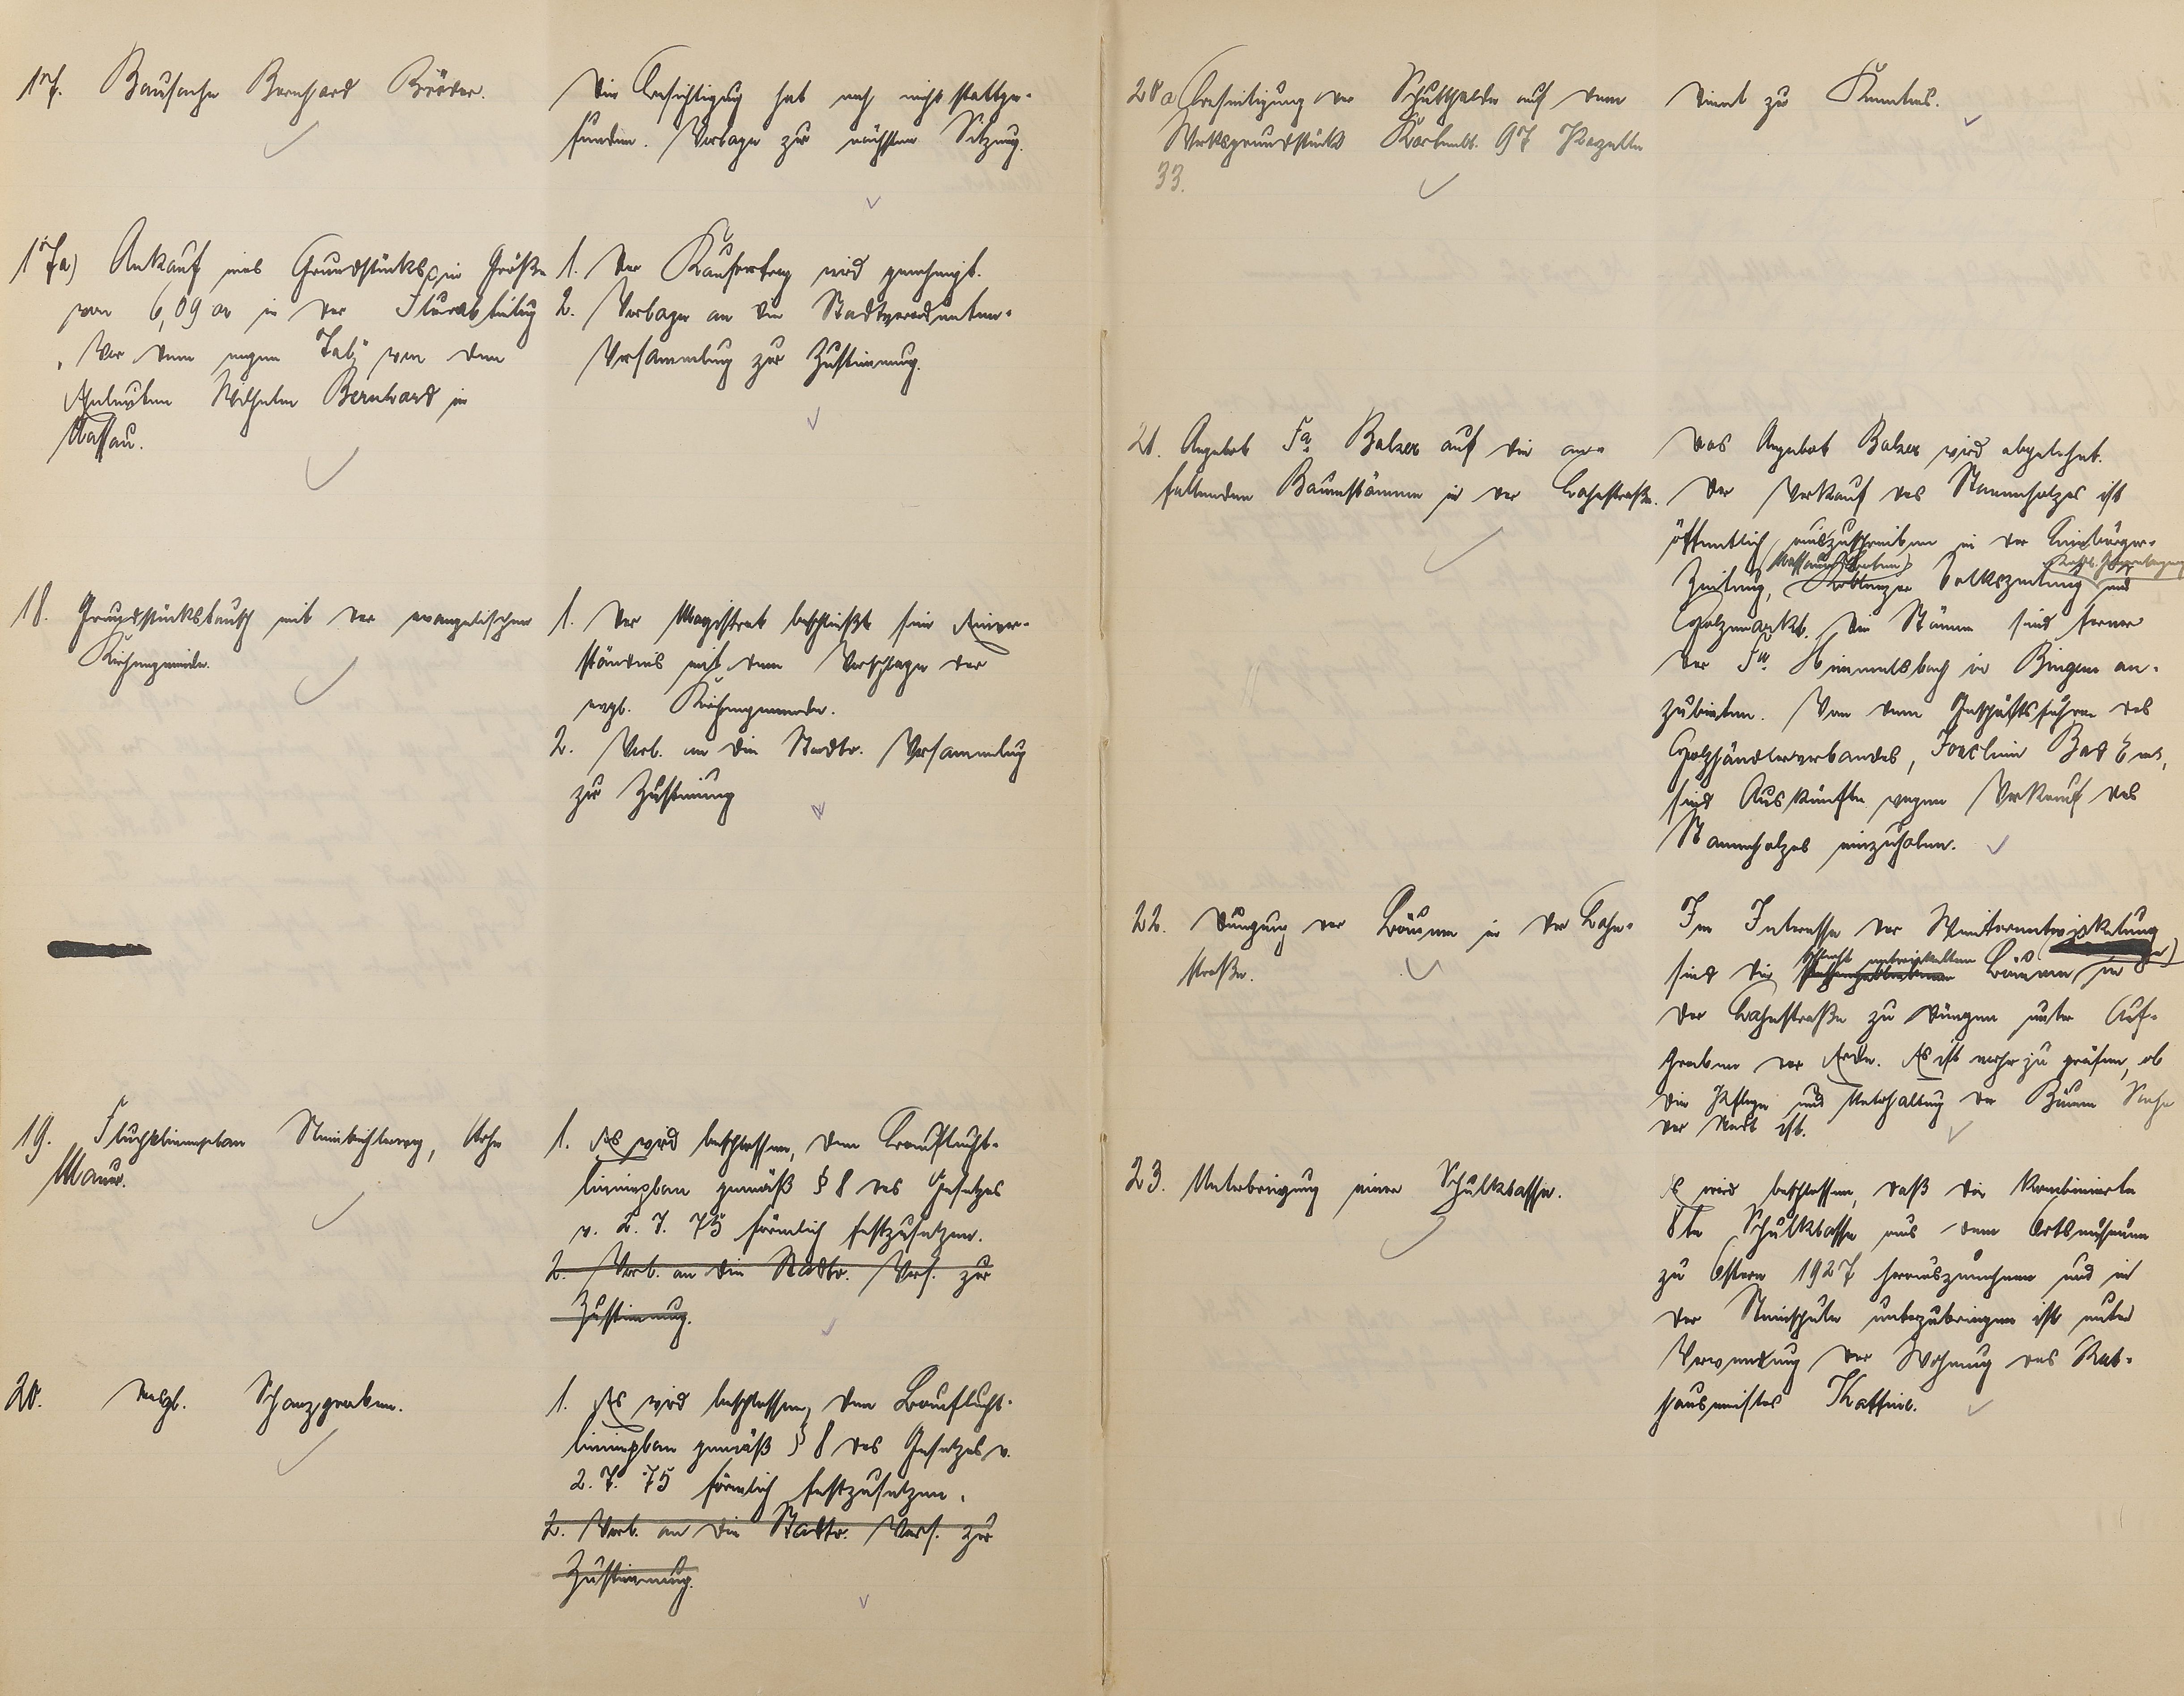 17. Bausache Bernhard Bröder.
Die Besichtigung hat noch nicht stattge-
funden. Vorlage zur nächsten Sitzung.
17a) Ankauf eines Grundstücks in Größe
von 6,09 ar in der Flurabteilung
„Vor dem engen Tal“ von dem
Eheleuten Wilhelm Bernhard in
Nassau.
1. Der Kaufvertrag wird genehmigt.
2. Vorlage an die Stadtverordneten-
Versammlung zur Zustimmung.
18. Grundstückstausch mit der evangelischen
Kirchengemeinde.
1. Der Magistrat beschließt sein Einver-
ständnis mit dem Vorschlage der
evgl. Kirchengemeinde.
2. Vorl. an die Stadtv. Versammlung
zur Zustimmung
19. Fluchtlinienplan Steinbichlerweg, Hohe
Mauer.
1. Es wird beschlossen, den Baufflucht-
linienplan gemäß § 8 des Gesetzes
v. 2. 7. 75 förmlich festzusetzen.
2. Vorl. an die Stadtv. Vers. zur
Zustimmung.
20. desgl. Schanzgraben.
1. Es wird beschlossen, den Baufflucht-
linienplan gemäß § 8 des Gesetzes v.
2. 7. 75 förmlich festzusetzen.
2. Vorl. an die Stadtv. Vers. zur
Zustimmung.
20a Beseitigung der Schutthalde auf dem
Werksgrundstück Kartenbl. 97 Parzelle
33.
Dient zur Kenntnis.
21. Angebot Fa. Balzer auf die an-
fallenden Baumstämme in der Lahnstraße.
Das Angebot Balzer wird abgelehnt.
Der Verkauf des Stammholzes ist
öffentlich auszuschreiben in der Limburger-
Zeitung, Koblenzer Volkszeitung und
Holzmarkt. Die Stämme sind ferner
der Fa. Himmelsbach in Bingen an-
zubieten. Von dem Geschäftsführer des
Holzhändlerverbandes, Bad Ems,
sind Auskünfte wegen Verkauf des
Stammholzes einzuholen.
22. Düngung der Bäume in der Lahn-
straße.
Im Interesse der Weiterentwickelung
sind die schlecht entwickelten Bäume in
der Lahnstraße zu düngen unter Auf-
graben der Erde. Es ist vorher zu prüfen, ob
die Pflege und Unterhaltung der Bäume Sache
der Stadt ist.
23. Unterbringung einer Schulklasse.
Es wird beschlossen, daß die kombinierte
8te Schulklasse aus dem Ortsmuseum
zu Ostern 1927 herauszunehmen und in
der Steinschule unterzubringen ist unter
Verwendung der Wohnung des Rat-
hausmeisters